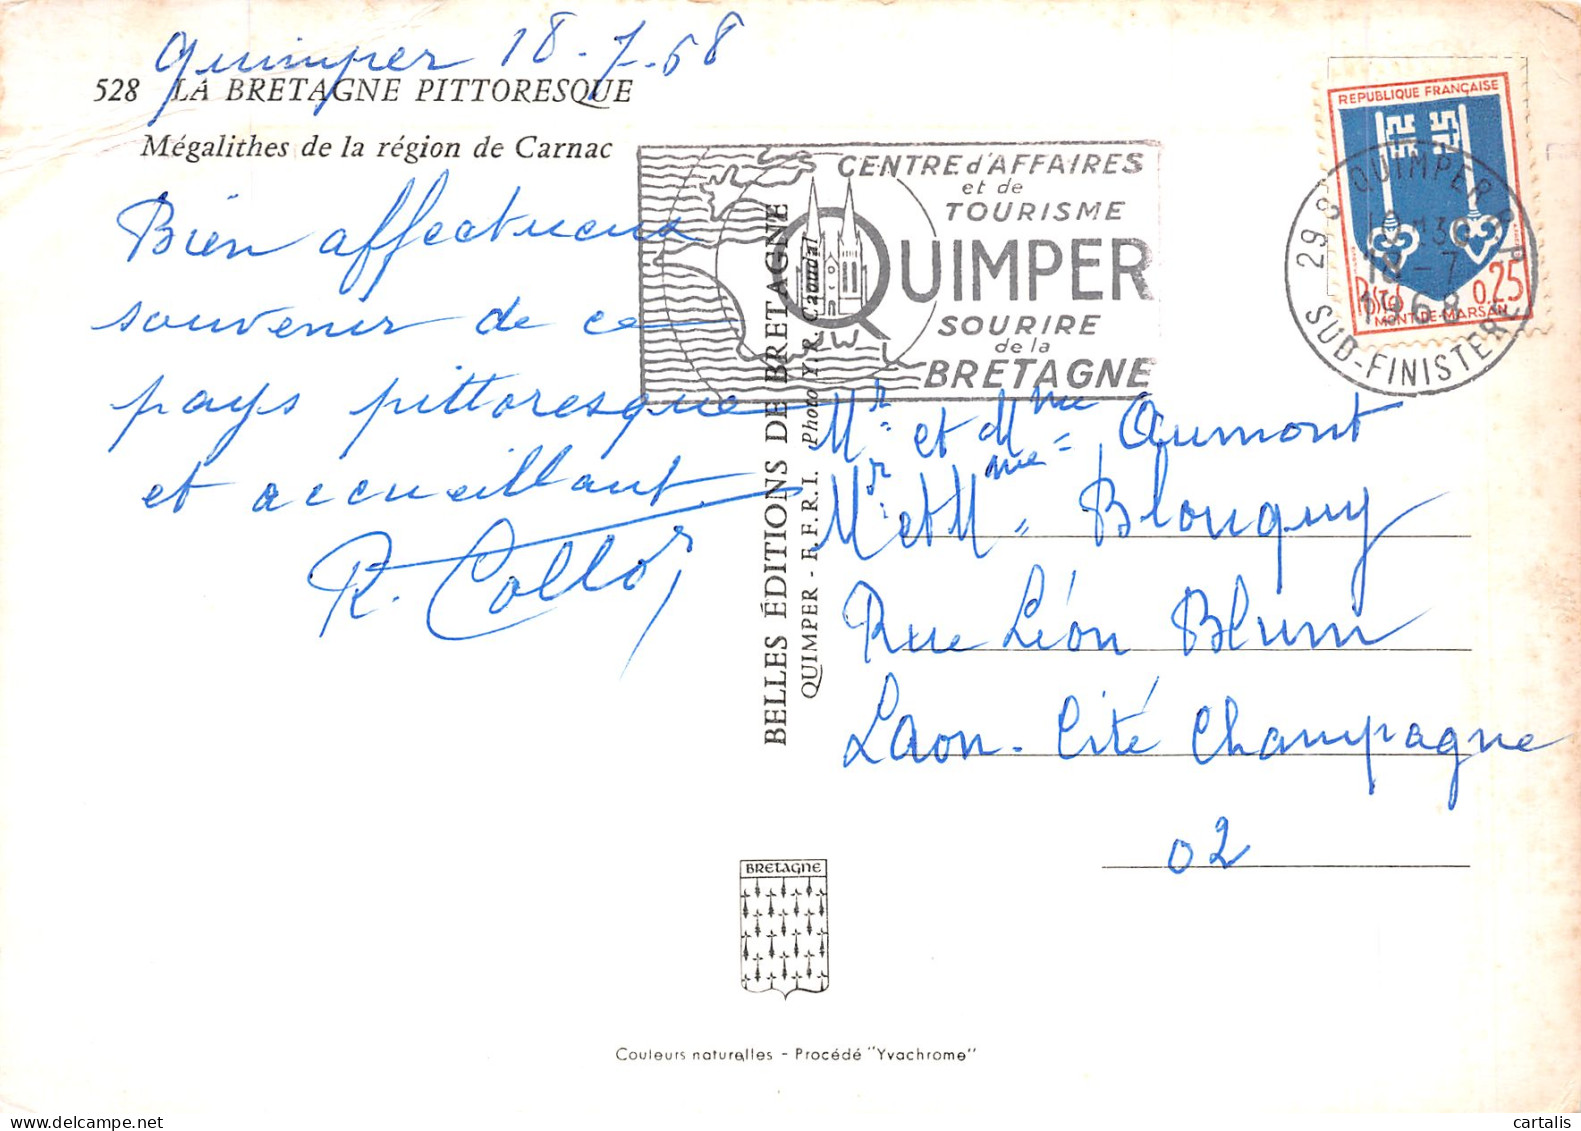 Quimper 18-7-68
528 LA BRETAGNE PITTORESQUE
Mégalithes de la région de Carnac
Bien affectueux
souvenir de ce
pays pittoresque
et accueillant
CENTRE d'AFFAIRES
et de
TOURISME
QUIMPER
SOURIRE
de la
BRETAGNE
REPUBLIQUE FRANÇAISE
Postes 0,25
MONT-DE-MARSAN
QUIMPER R.P.
18-7
1968
29 S SUD-FINISTERE
BELLES ÉDITIONS DE BRETAGNE
QUIMPER - F.F.R.I. Photo Y. R. Caoudal
Mr et Mme Aumont
Mr et Mme Blougny
Rue Léon Blum
Laon - Cité Champagne
02
BRETAGNE
Couleurs naturelles - Procédé "Yvachrome"
cartalis